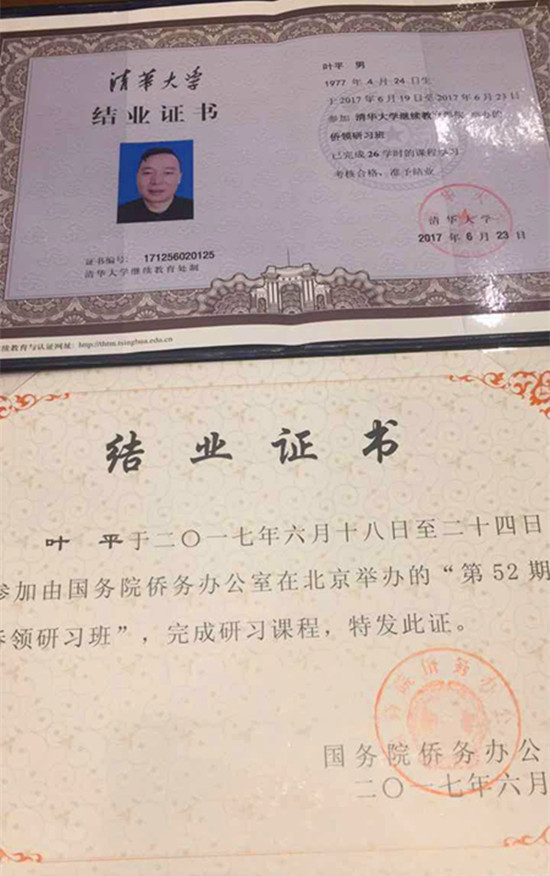 清华大学
结业证书
证书编号: 171256020125
清华大学继续教育处制
叶平 男
1977 年 4 月 24 日生
于 2017 年 6 月 19 日至 2017 年 6 月 23 日
参加 清华大学继续教育学院 的
侨领研习班
已完成 26 学时的课程学习
考核合格,准予结业
清华大学
2017 年 6 月 23 日
续教育与认证网址: http://thtm.tsinghua.edu.cn
结业证书
叶 平于二〇一七年六月十八日至二十四日
参加由国务院侨务办公室在北京举办的“第 52 期
侨领研习班”,完成研习课程,特发此证。
务院侨务办公
国务院侨务办公
二〇一七年六月